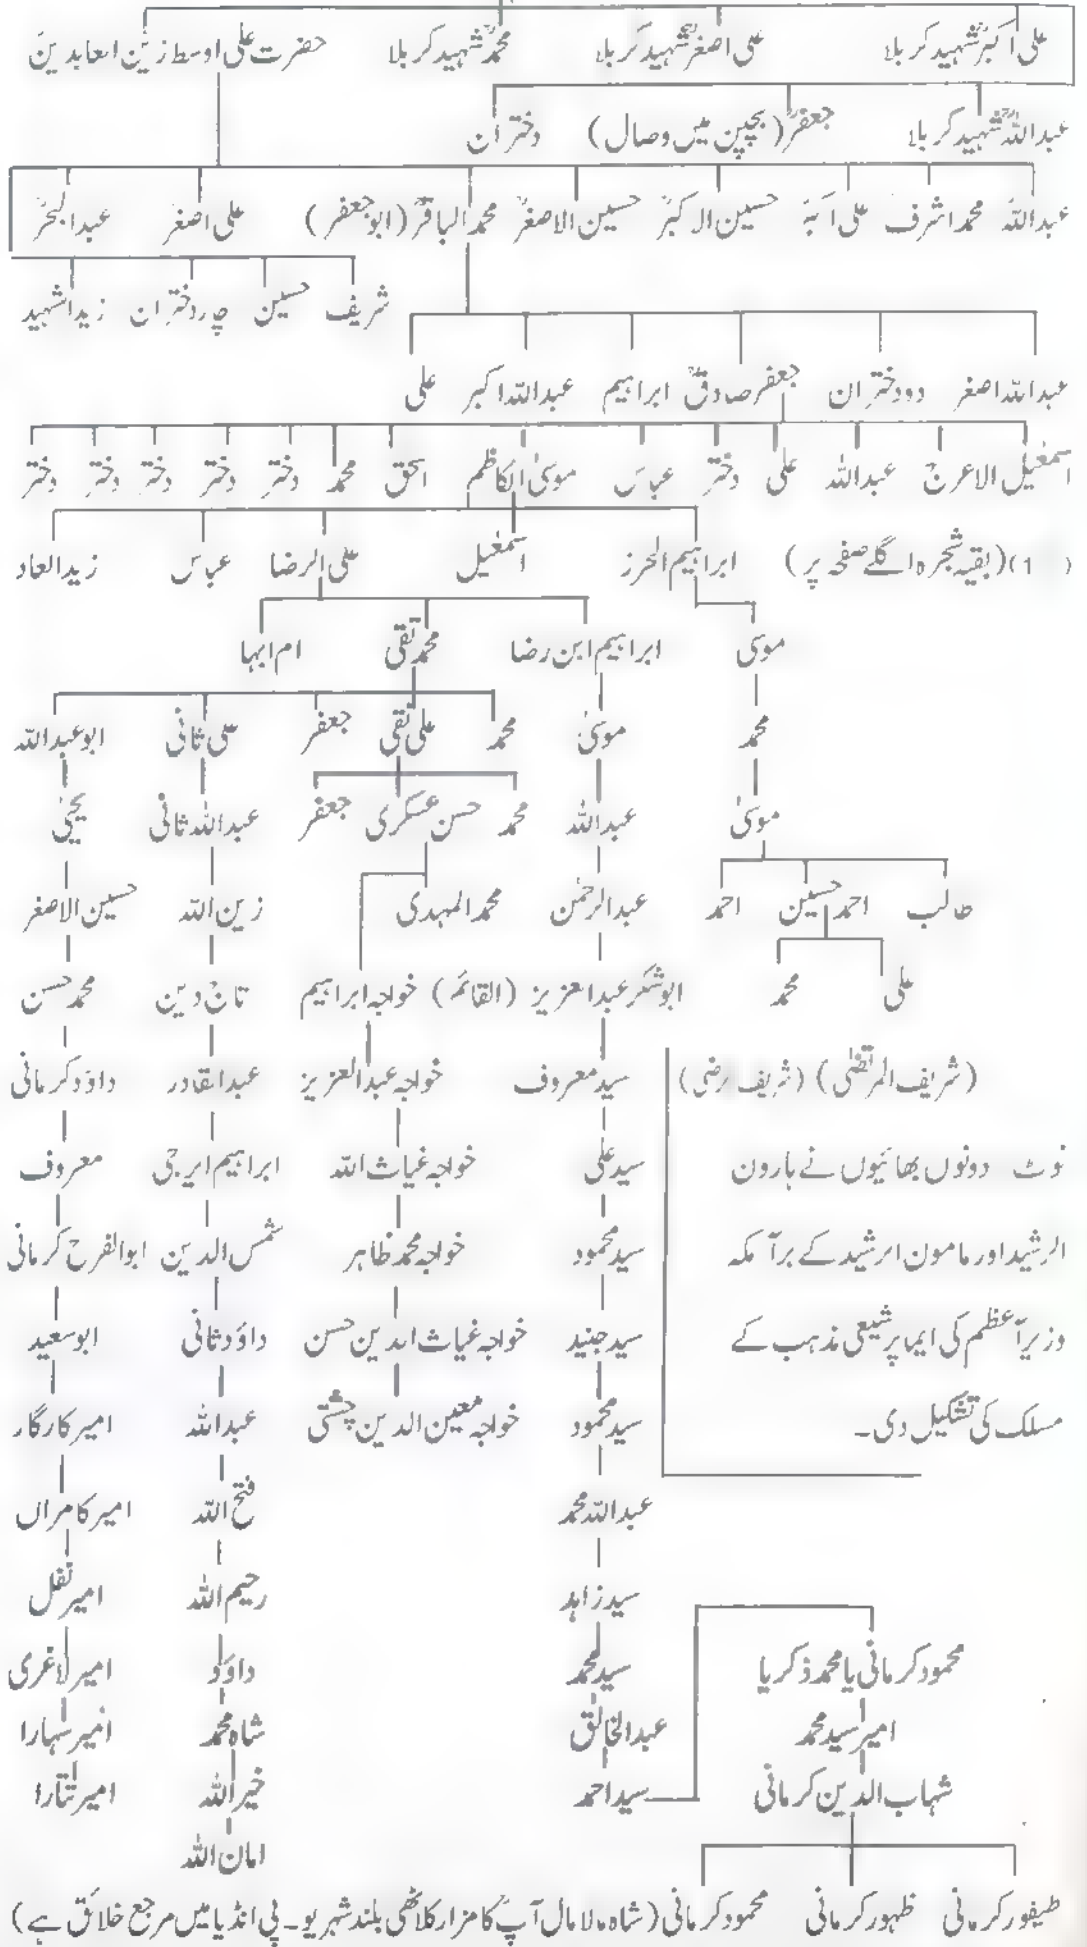 علی اکبرؓ شہید کربلا علی اصغرؓ شہید کربلا محمدؓ شہید کربلا حضرت علی اوسط زین العابدین
عبداللہؓ شہید کربلا جعفرؓ (بچپن میں وصال) دختران
عبداللہ محمد اشرف علی حسین الاکبر حسین الاصغر محمد الباقر (ابو جعفر) علی اصغر عبدالبحر
شریف حسین چار دختران زید الشہید
عبداللہ اصغر دو دختران جعفر صادق ابراہیم عبداللہ اکبر علی
اسمٰعیل الاعرج عبداللہ علی دختر عباس موسیٰ الکاظم اسحٰق محمد دختر دختر دختر دختر دختر
(1) (بقیہ شجرہ اگلے صفحہ پر) ابراہیم الحرز اسمٰعیل علی الرضا عباس زید العاد
موسیٰ ابراہیم ابن رضا محمد تقی ام ابہا
محمد موسیٰ محمد علی نقی جعفر علی ثانی ابو عبداللہ
موسیٰ عبداللہ محمد حسن عسکری جعفر عبداللہ ثانی یحییٰ
طالب احمد حسین احمد عبدالرحمٰن محمد المہدی زین اللہ حسین الاصغر
علی محمد ابو شکر عبدالعزیز (القائم) خواجہ ابراہیم تاج دین محمد حسن
(شریف المرتضٰی) (شریف رضی) سید معروف خواجہ عبدالعزیز عبدالقادر داؤد کرمانی
نوٹ دونوں بھائیوں نے ہارون سید علی خواجہ غیاث اللہ ابراہیم ایرجی معروف
الرشید اور مامون الرشید کے برآمکہ سید محمود خواجہ محمد طاہر شمس الدین ابوالفرح کرمانی
وزیرآعظم کی ایما پر شیعی مذہب کے سید جنید خواجہ غیاث الدین حسن داؤد ثانی ابو سعید
مسلک کی تشکیل دی۔ سید محمود خواجہ معین الدین چشتی عبداللہ امیر کارگار
عبداللہ محمد فتح اللہ امیر کامراں
سید زاہد رحیم اللہ امیر نفل
محمود کرمانی یا محمد ذکریا سید محمد داؤد امیر لاغری
امیر سید محمد عبدالخالق شاہ محمد امیر سہارا
شہاب الدین کرمانی سید احمد خیر اللہ امیر تتارا
امان اللہ
طیفور کرمانی ظہور کرمانی محمود کرمانی (شاہ مالا مال آپ کا مزار کلاٹھی بلند شہر یو۔ پی انڈیا میں مرجع خلائق ہے)